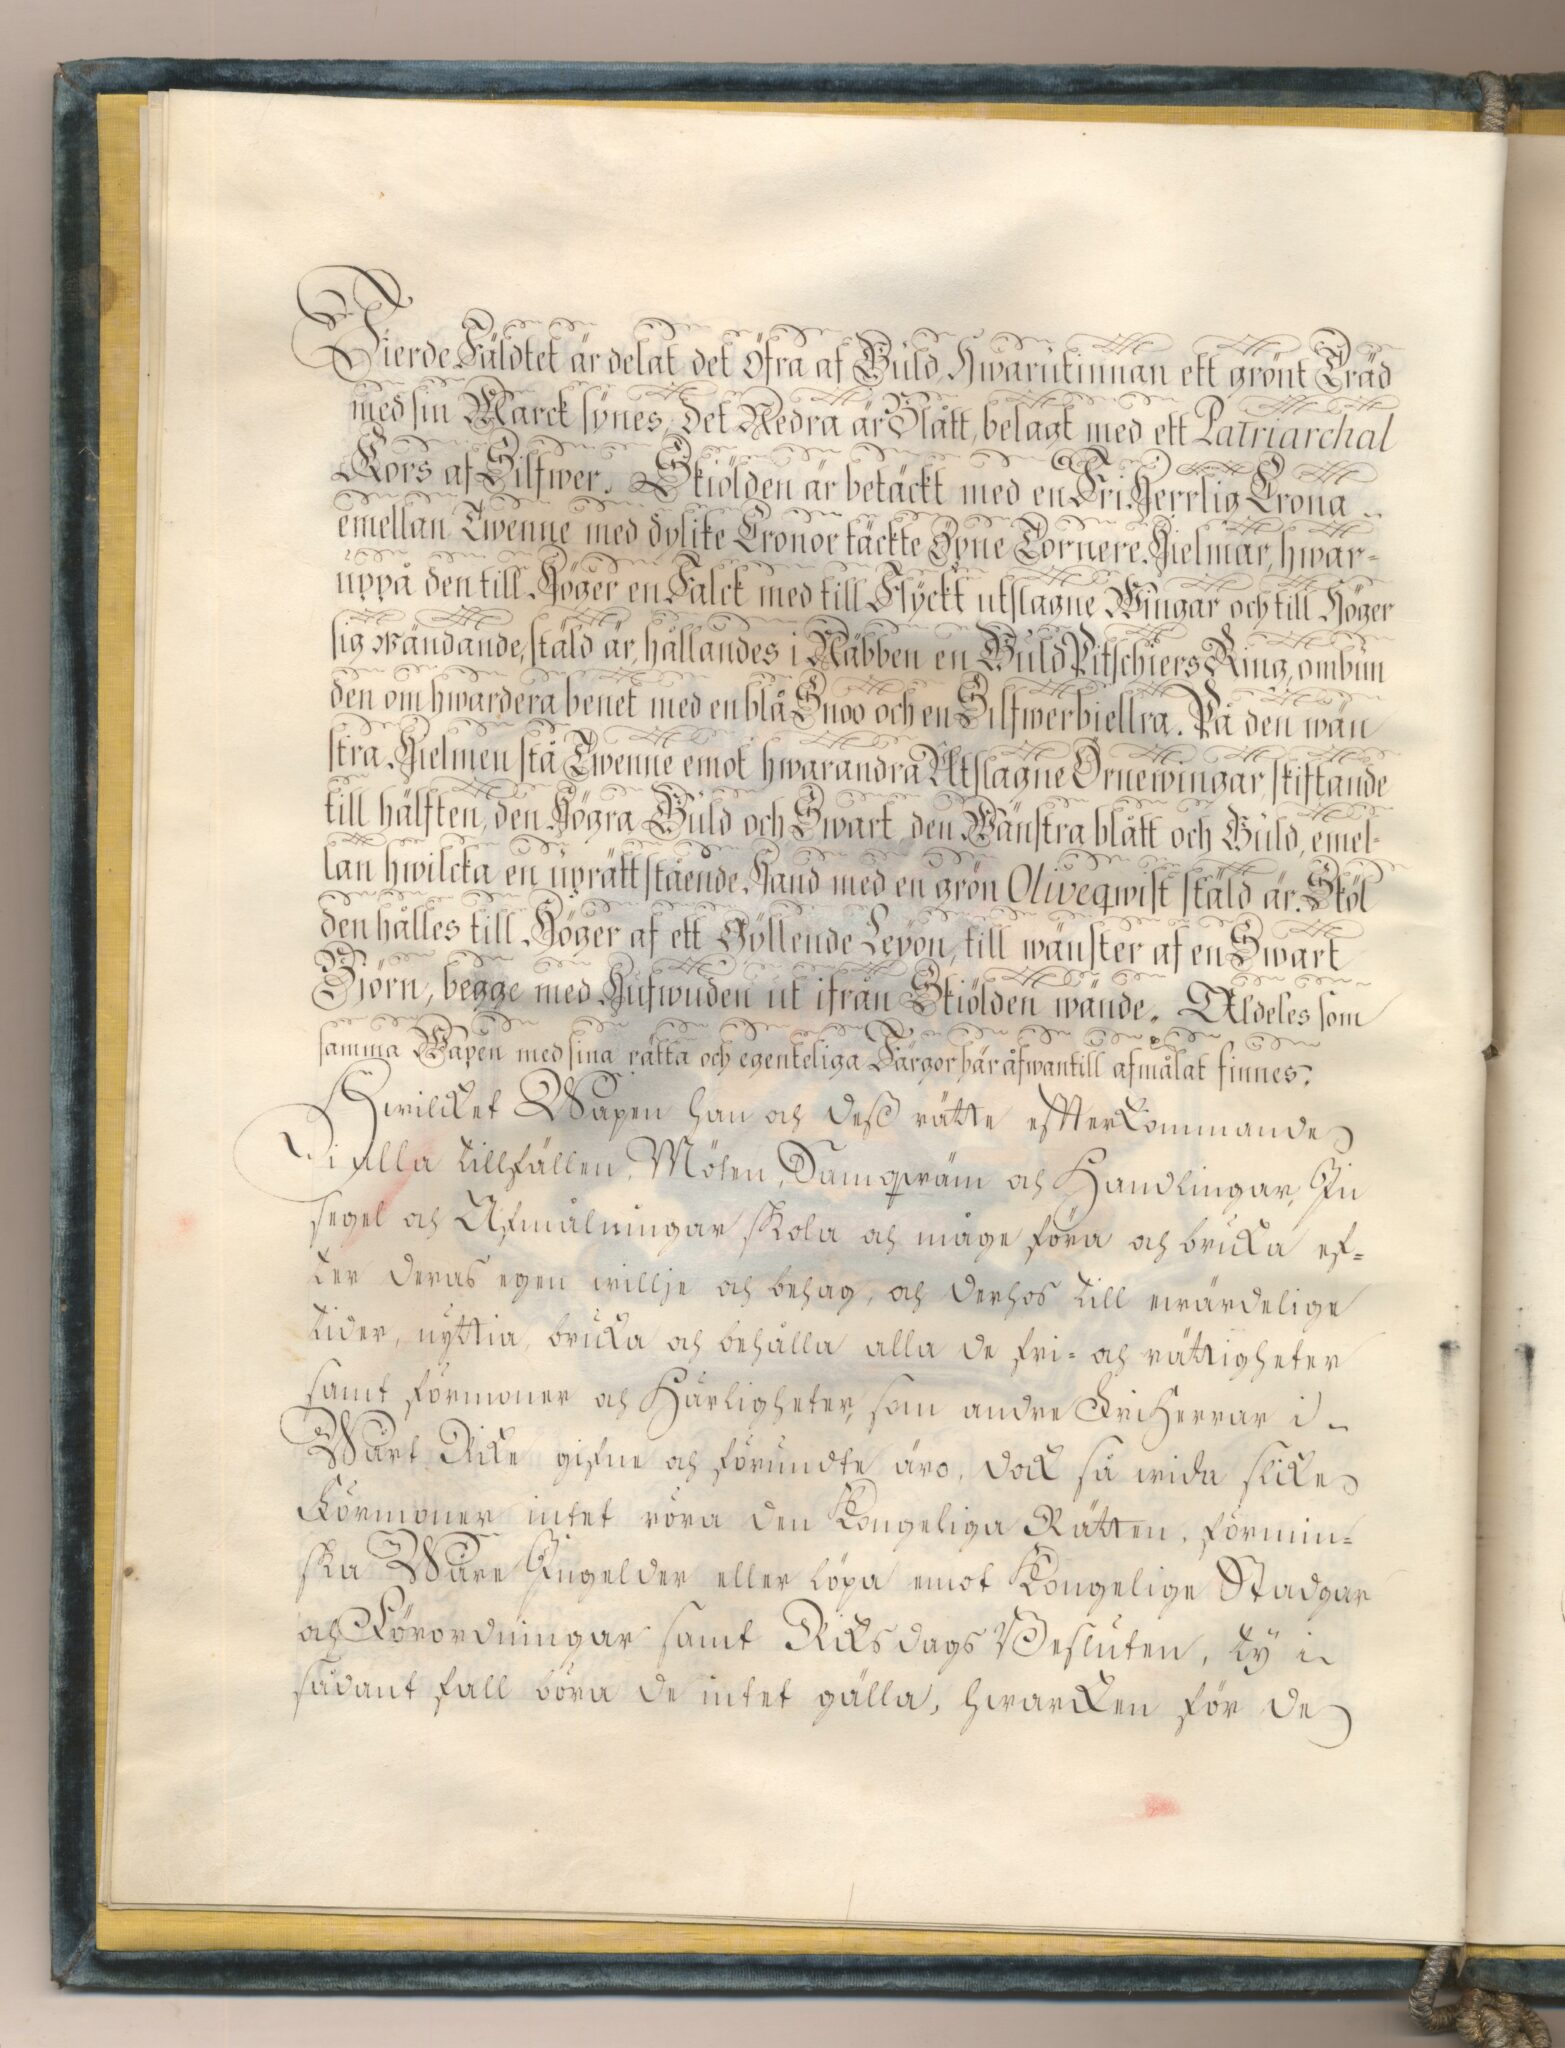 Fierde Fäldtet är delat det öfra af Guld, Hwarutinnan ett grönt Träd
med sin Marck synes, det Nedra är Blått, belagt med ett Patriarchal
Kors af Silfwer. Skiölden är betäckt med en FriHerrlig Crona
emellan Twenne med dylike Cronor täckte Öpne Tornere Hielmar, hwar-
uppå den till Höger en Falck med till Flyckt utslagne Wingar och till Höger
sig wändande, stäld är, hållandes i Näbben en Guld Pitschiers Ring, ombun
den om hwardera benet med en blå Snoo och en Silfwerbiellra. På den wän
stra Hielmen stå Twenne emot hwarandra Utslagne Örnewingar, skiftande
till hälften, den Högra Guld och Swart den Wänstra blått och Guld, emel-
lan hwilcka en uprätt stående Hand med en grön Oliveqwist stäld är. Sköl
den hålles till Höger af ett Gyllende Leyon, till wänster af en Swart
Björn, begge med Hufwuden ut ifrån Skiölden wände. Aldeles som
samma Wapen med sina rätta och egenteliga Färgor här åfwantill afmålat finnes.
Hwilcket Wapen han och dess rätte effterkommande
i alla tillfällen, Möten, Samqwäm och Handlingar, In
segel och Afmålningar skola och måge föra och bruka ef-
ter deras egen willje och behag, och derhos till ewärdelige
tider, nyttia, bruka och behålla alla de fri- och rättigheter
samt förmoner och Härligheter, som andre FriHerrar i
Wårt Rike gifne och förundte äro, dock så wida slike
Förmoner intet röra den Kongeliga Rätten, förmin-
ska Wåre Ingelder eller löpa emot Kongelige Stadgar
och Förordningar samt Riksdags Besluten, ty i
sådant fall böra de intet gälla, hwarcken för de